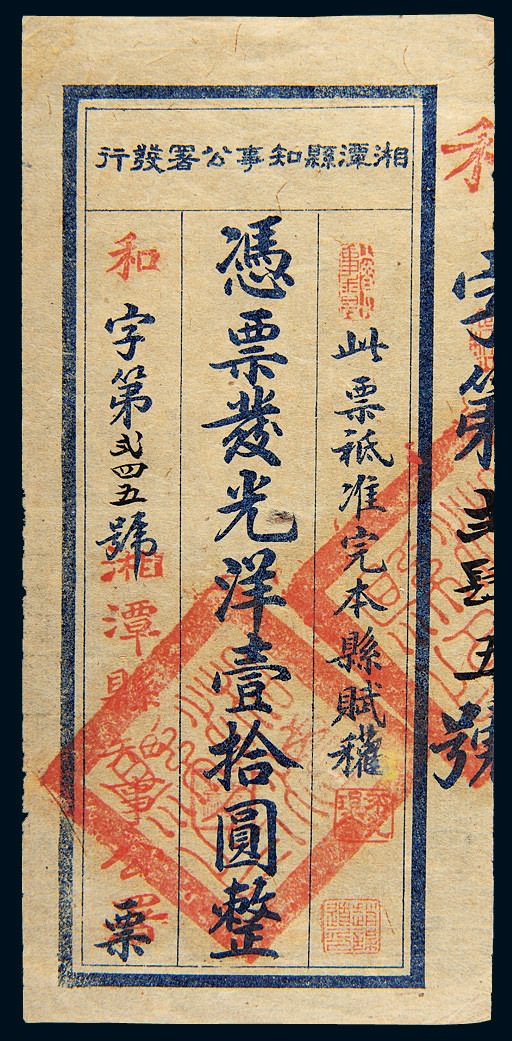 湘潭縣知事公署發行
此票祇准完本縣賦稅
憑票發光洋壹拾圓整
和字第弍四五號
湘潭縣知事公署
票
字第弍肆五號